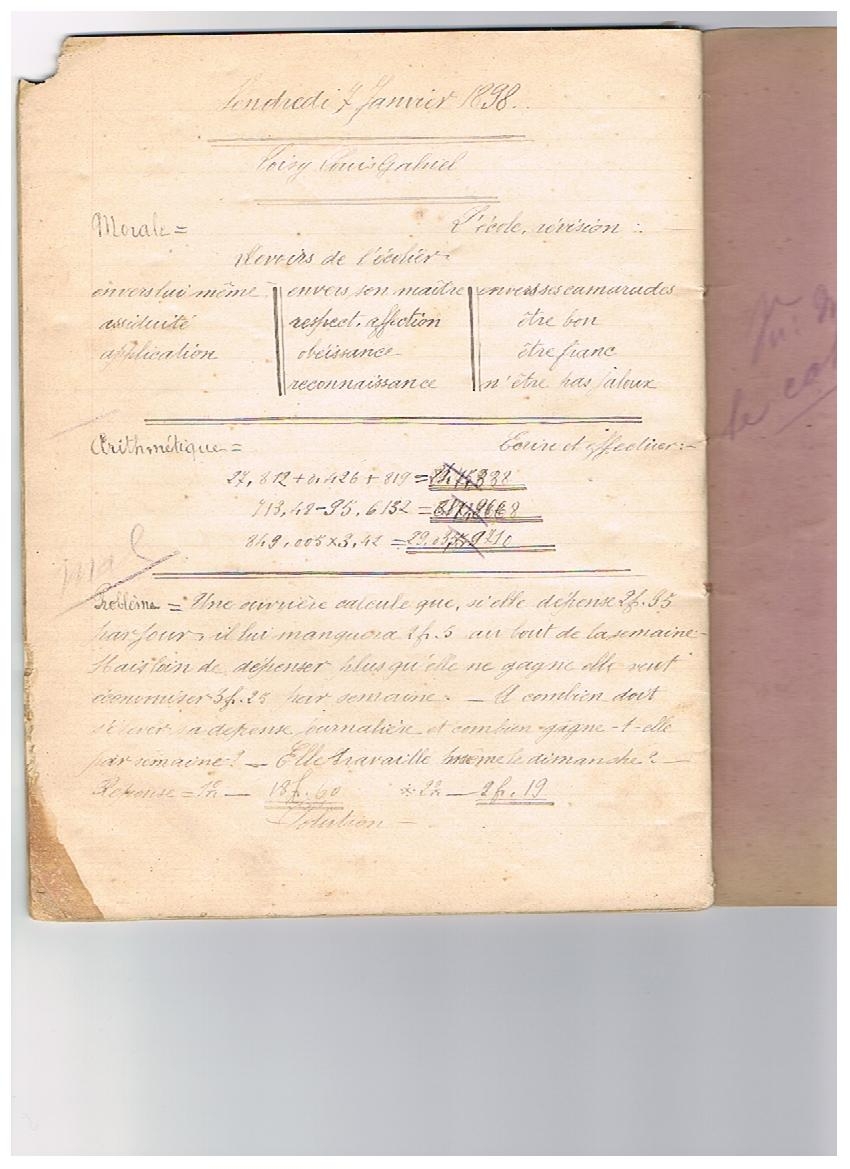 Vendredi 7 Janvier 1898.
Loisy Louis Gabriel
Morale = L'école, révision :
Devoirs de l'écolier
envers lui même envers son maître envers ses camarades
assiduité respect, affection être bon
application obéissance être franc
reconnaissance n'être pas jaloux
Arithmétique = Ecrire et effectuer :
27,812 + 0,426 + 819 =
713,48 - 95,6132 =
849,005 x 3,42 =
mal
Problème = Une ouvrière calcule que, si elle dépense 2f.95
par jour, il lui manquera 2f.5 au bout de la semaine
Mais loin de dépenser plus qu'elle ne gagne elle veut
économiser 3f.25 par semaine. — A combien doit
s'élever sa dépense journalière et combien gagne-t-elle
par semaine ? — Elle travaille même le dimanche ? —
Réponse = 1° — 18f.60 2° — 2f.19
Solution —
le